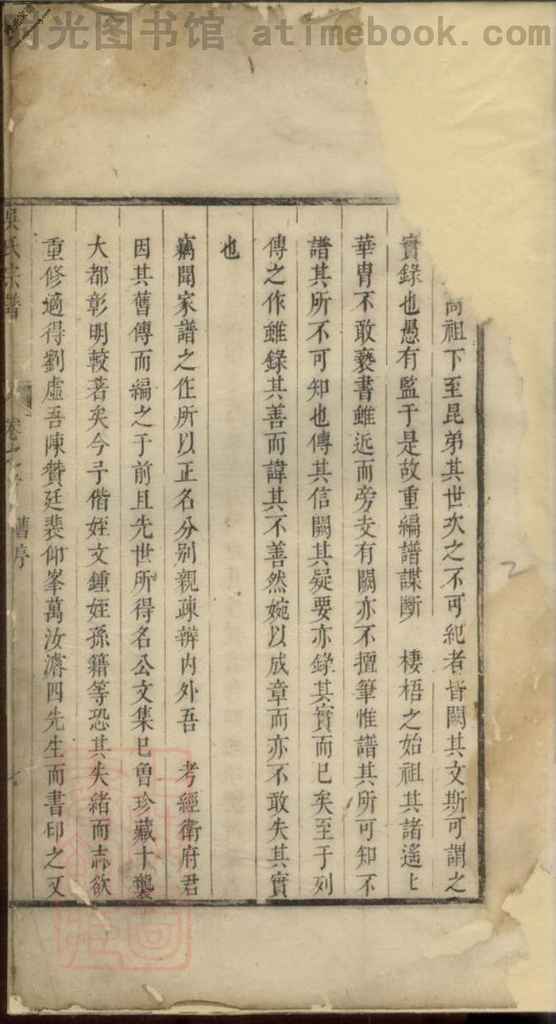 时光图书馆 atimebook.com
祖下至昆弟其世次之不可紀者皆闕其文斯可謂之
實錄也愚有監于是故重編譜諜斷 棲梧之始祖其諸遙上
華胄不敢褻書雖近而旁支有闕亦不擅筆惟譜其所可知不
譜其所不可知也傳其信闕其疑要亦錄其實而已矣至于列
傳之作雖錄其善而諱其不善然婉以成章而亦不敢失其實
也
竊聞家譜之作所以正名分别親疎辨内外吾 考經衛府君
因其舊傳而編之于前且先世所得名公文集已曾珍藏十襲
大都彰明較著矣今予偕姪文鍾姪孫籍等恐其失緒而志欲
重修適得劉虛吾陳贊廷裴仰峯萬汝濬四先生而書印之又
吳氏宗譜 卷之 舊序
2